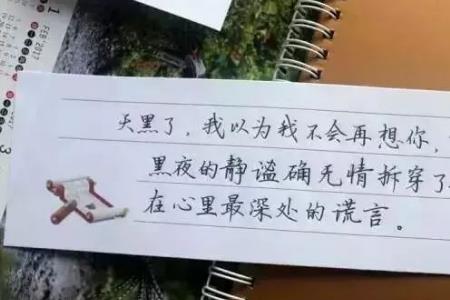 1
FEB/2017
3
天黑了，我以为我不会再想你，
黑夜的静谧确无情拆穿了
在心里最深处的谎言。